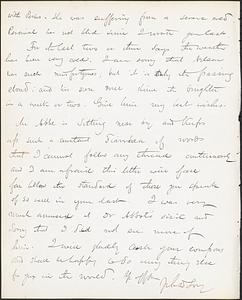 with Boise. She was suffering from a severe cold
Perowal has not died since I wrote you last.
For the last two or three days the weather
has been very cold. I am sorry that Nelson
has such misfortunes; but it is only the passing
cloud; and his sun will shine the brighter
in a week or two. Give him my best wishes.
Mr. Able is sitting near by and keeps
up such a constant of words
that I cannot follow any thread continuously
and I am afraid this letter will fall
far below the standard of those you speak
of so well in your last. I was very
much amused at Dr Abbots visit and
sorry that I did not see more of
him. I will gladly cash your coupons
and shall be happy to do any thing else
for you in the world. Yr aff